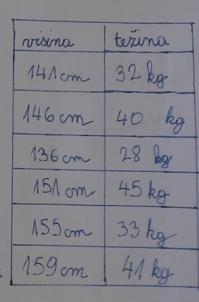 višina težina
141 cm 32 kg
146 cm 40 kg
136 cm 28 kg
151 cm 45 kg
155 cm 33 kg
159 cm 41 kg